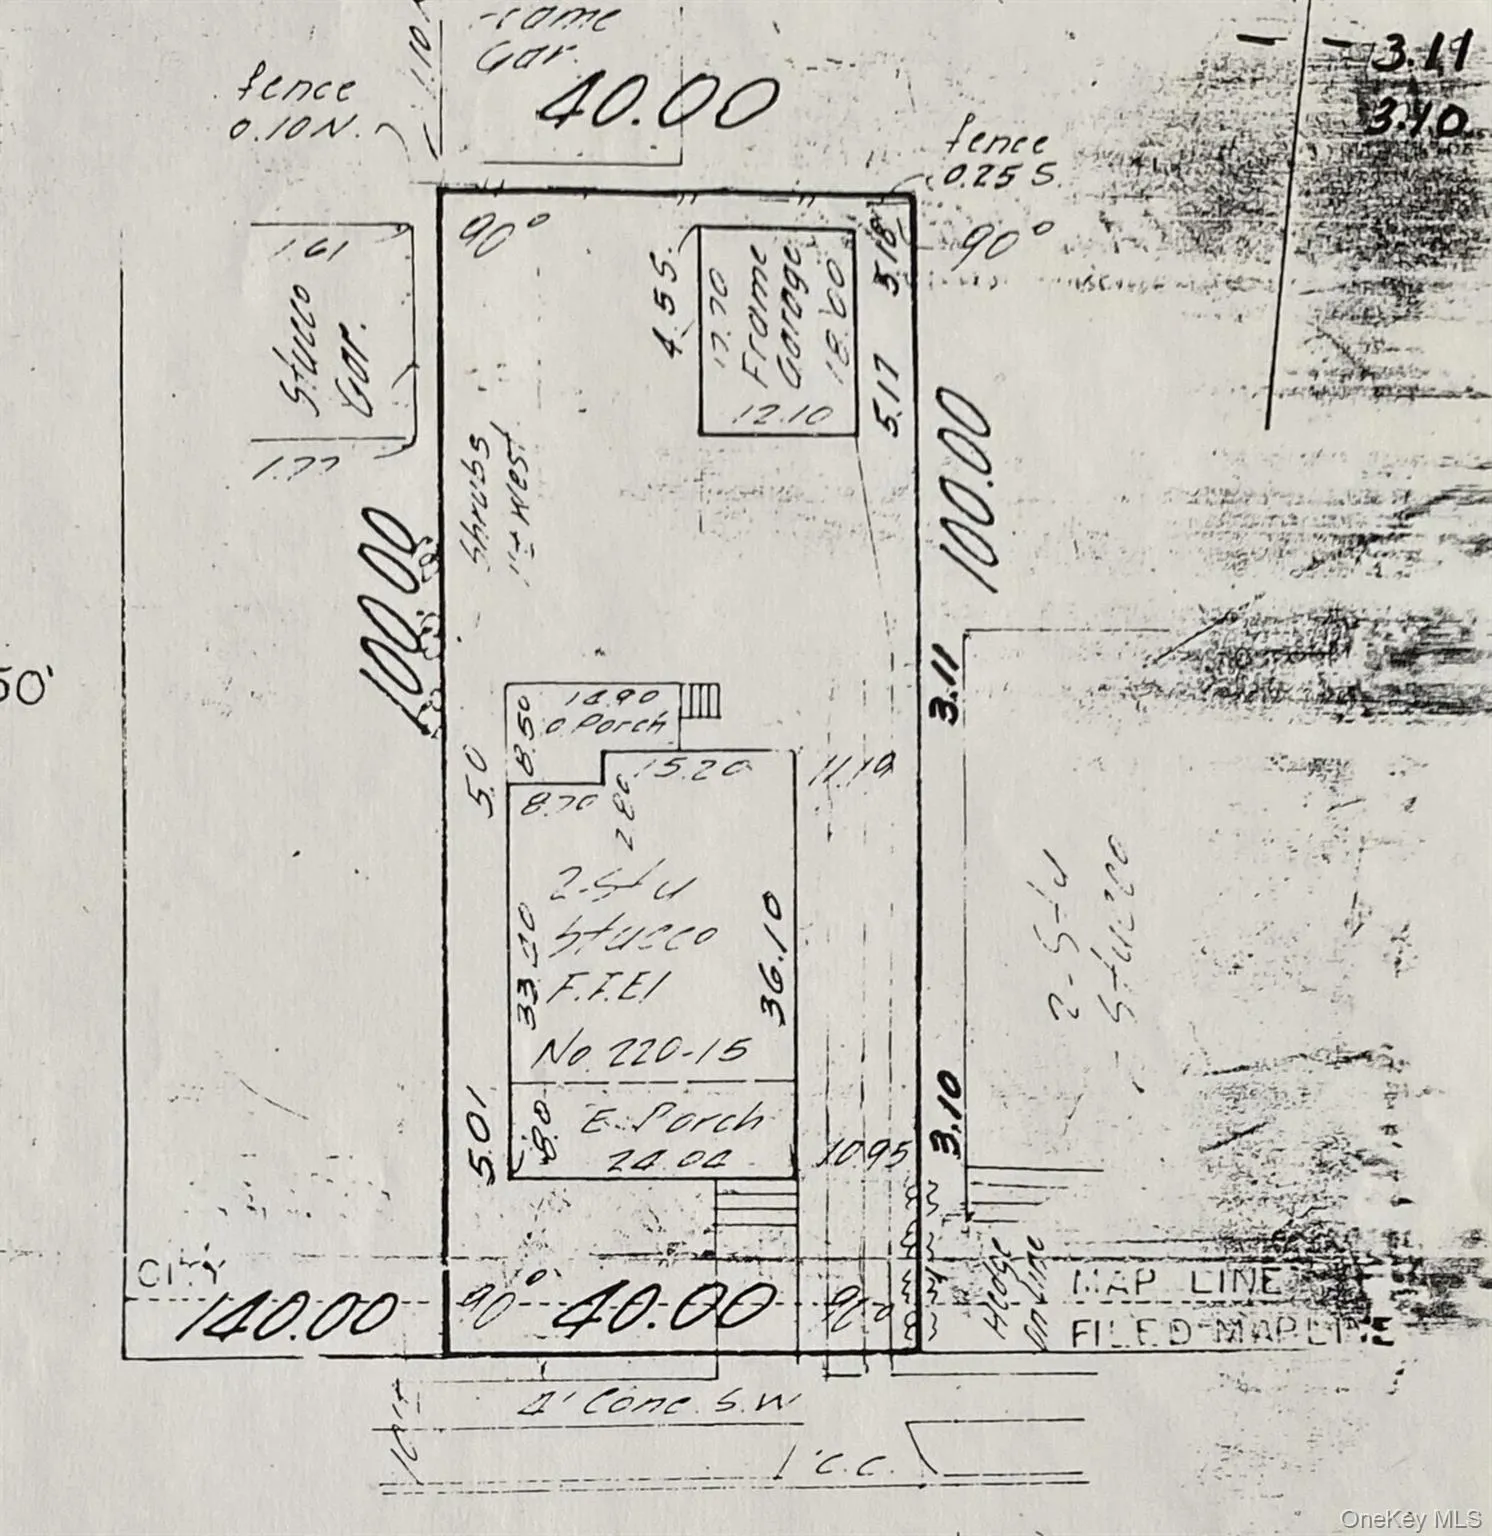 Gar.
40.00
fence
0.10 N.
fence
0.25 S.
3.11
3.10
90°
90°
1.61
Stucco
Gar.
1.77
4.55
17.70
Frame
Garage
18.00
12.10
3.18
5.17
100.00
100.00
Shrubs
1'± West
50'
3.11
14.90
o Porch
8.50
15.20
11.19
5.0
8.70
2.80
2-Sty
Stucco
F.F.El
No. 220-15
33.20
36.10
2-Sty
Stucco
5.01
8.0
E. Porch
24.04
10.95
3.10
CITY
MAP LINE
140.00
90°
40.00
90°
Hedge
on line
FILED MAP LINE
4' Conc. S.W
C.C.
OneKey MLS